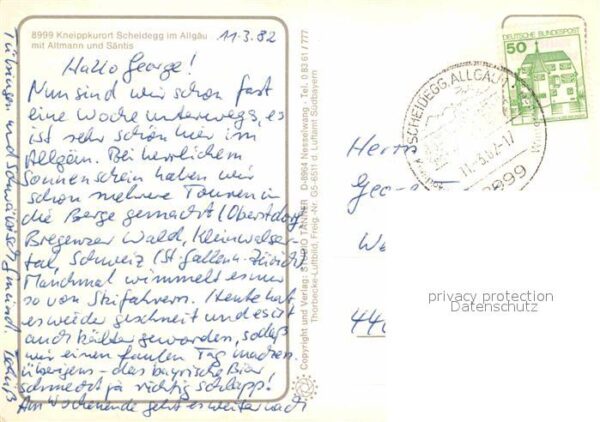 8999 Kneippkurort Scheidegg im Allgäu
mit Altmann und Säntis
11.3.82
Hallo George!
Nun sind wir schon fast
eine Woche unterwegs, es
ist sehr schön hier im
Allgäu. Bei herrlichem
Sonnenschein haben wir
schon mehrere Touren in
die Berge gemacht (Oberstdorf,
Bregenzer Wald, Kleinwalser-
tal, Schweiz (St. Gallen u. Zürich)
Manchmal wimmelt es nur
so von Skifahrern. Heute hat
es wieder geschneit und es ist
auch kälter geworden, sodaß
wir einen faulen Tag machen.
Übrigens - das bayrische Bier
schmeckt ja richtig schlapp!
Am Wochenende geht es weiter nach
Tübingen und Schwäbisch Gmünd.
Copyright und Verlag: STUDIO TANNER D-8964 Nesselwang · Tel. 0 83 61 / 777
Thorbecke-Luftbild, Freig.-Nr. G5-6511 d. Luftamt Südbayern
DEUTSCHE BUNDESPOST
50
SCHEIDEGG, ALLGÄU
11.-3.82-17
8999
Herrn
Geo
We
privacy protection
Datenschutz
440